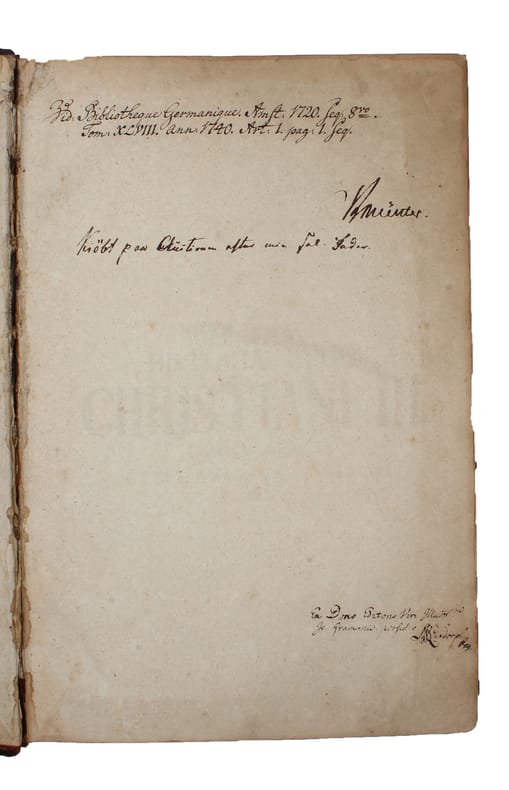 Vid. Bibliotheque Germanique. Amst. 1720. seq. 8vo.
Tom. XLVIII. ann. 1740. Art. 1. pag. 1. seq.
Münter.
Kiöbt paa Auctionen efter min Sal. Fader.
CHRISTIANI III
Ex Dono Editoris Viri Illustr.